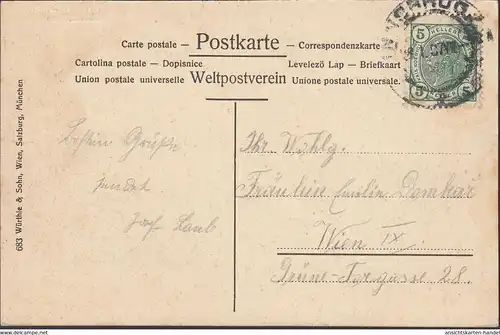 Carte postale — Postkarte — Correspondenzkarte
Cartolina postale — Dopisnice
Levelező Lap — Briefkaart
Union postale universelle Weltpostverein Unione postale universale.
5 HELLER 5
683 Würthle & Sohn, Wien, Salzburg, München
Besten Gruß
sendet
Josef Laub
Ihr Wohlg.
Fräulein Emilie
Wien IX.
Grüne-Torgasse 28.
www.ansichtskarten-handel